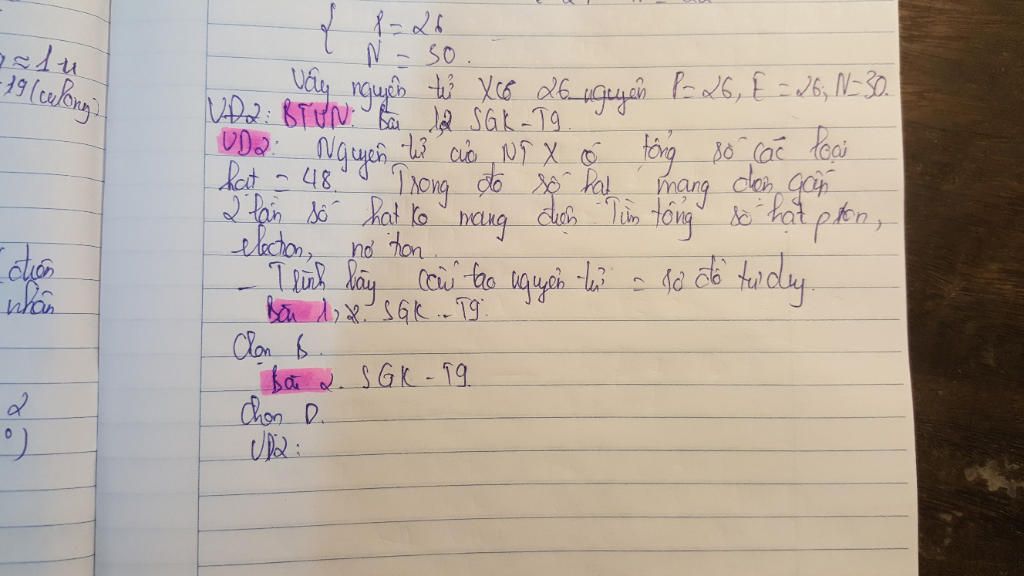 ≈ 1u
19 (culong)
điện
nhân
2
0)
{ P = 26
N = 30.
Vậy nguyên tử X có 26 nguyên P = 26, E = 26, N = 30.
VD2: BTVN: Bài 1,2 SGK - T9.
VD2: Nguyên tử của NT X có tổng số các loại
hạt = 48. Trong đó số hạt mang điện gấp
2 lần số hạt ko mang điện. Tìm tổng số hạt proton,
electron, nơ tron.
- Trình bày cấu tạo nguyên tử = sơ đồ tư duy.
Bài 1, SGK - T9.
Chọn B.
Bài 2. SGK - T9
Chọn D.
VD2: